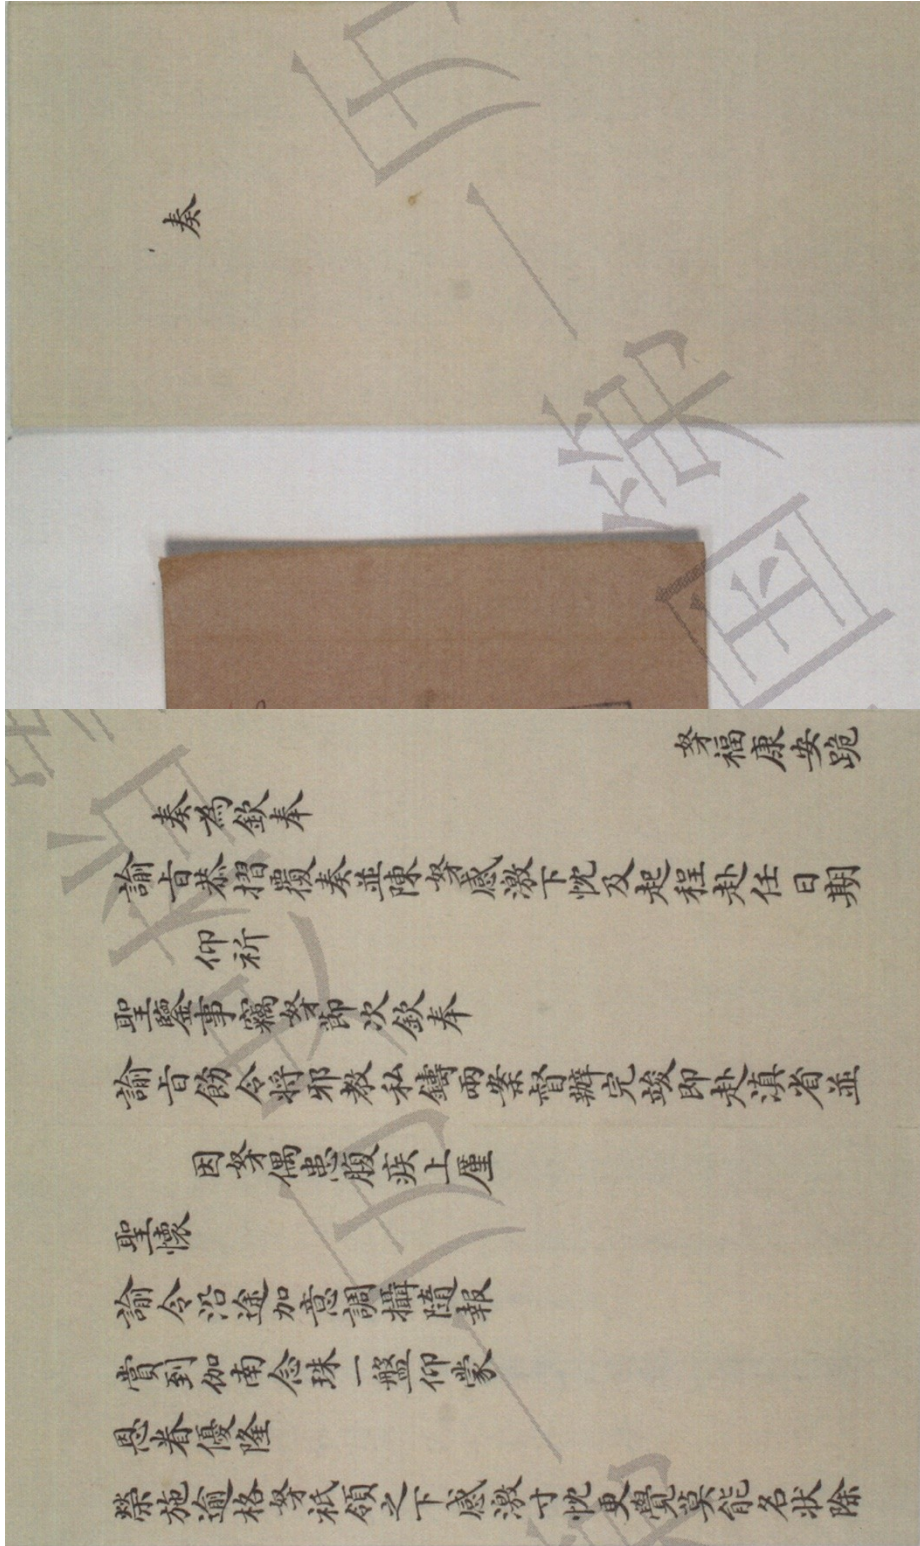 奏
奴才福康安跪
奏為欽奉
諭旨恭摺覆奏並陳奴才感激下忱及起程赴任日期
仰祈
聖鑒事竊奴才節次欽奉
諭旨飭令將邪教私鑄兩案督辦完竣即赴滇省並
因奴才偶患腹疾上厪
聖懷
諭令沿途加意調攝隨報
賞到伽南念珠一盤仰蒙
恩眷優隆
榮施逾格奴才祇領之下感激寸忱更覺莫能名狀除